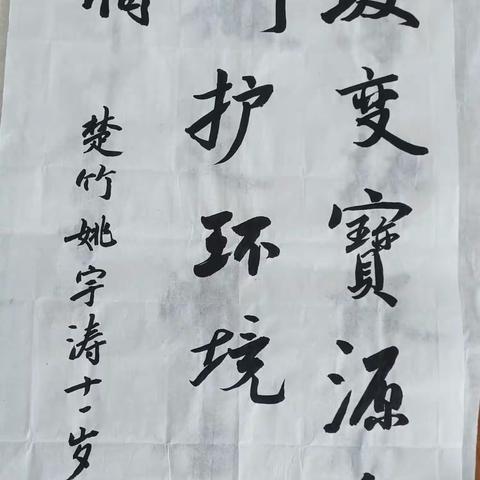 变寶源
护环境
楚竹姚宇涛十一岁